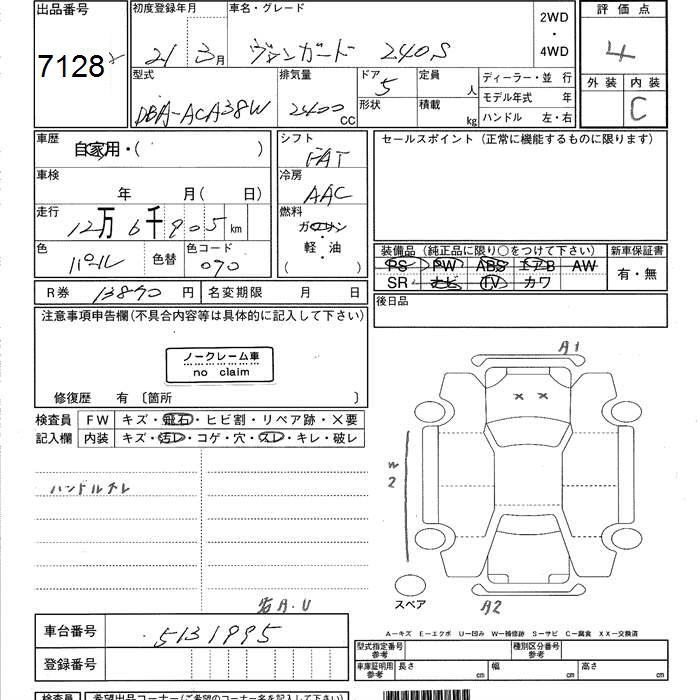 出品番号 初度登録年月 車名・グレード 2WD ・ 4WD 評価点
7128 21 3月 ヴァンガード 240S 4
型式 排気量 ドア 定員 ディーラー・並 行 外装 内装
DBA-ACA38W 2400 CC 5 人 モデル年式 年 C
形状 積載 kg ハンドル 左・右
車歴 自家用・( ) シフト FAT セールスポイント (正常に機能するものに限ります)
車検 年 月( 日) 冷房 AAC
走行 12万 6千 905 km 燃料 ガソリン
軽・油
( )
色 パール 色替 色コード 070
装備品 (純正品に限り○をつけて下さい) 新車保証書
PS PW ABS エアB AW 有・無
SR ナビ TV カワ
R券 13870 円 名変期限 月 日 後日品
注意事項申告欄(不具合内容等は具体的に記入して下さい)
ノークレーム車
no claim
修復歴 有 〔箇所 〕
検査員 FW キズ・飛石・ヒビ割・リペア跡・×要
記入欄 内装 キズ・汚レ・コゲ・穴・スレ・キレ・破レ
ハンドルスレ
A1
× ×
W2
スペア
A2
A・U
A—キズ E—エクボ U—凹み W—補修跡 S—サビ C—腐食 XX—交換済
車台番号 5131995
登録番号
型式指定番号 参考 種別区分番号 参考
車庫証明用 参考 長さ cm 幅 cm 高さ cm
検査員 希望出品コーナー(ご希望のコーナー名を記入して下さい)